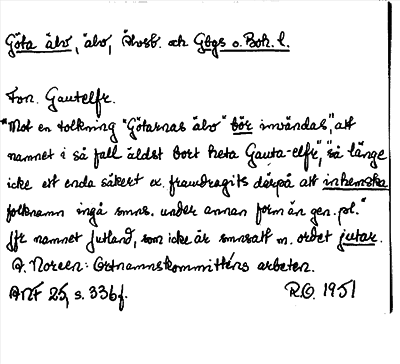 Göta älv, älv, Älvsb. och Gbgs o. Boh. l.
Fon. Gautelfr.
"Mot en tolkning "Götarnas älv" bör invändas, "att
namnet i så fall äldst bort heta Gauta-elfr", "så länge
icke ett enda säkert ex. framdragits därpå att inhemska
folknamn ingå smns. under annan form än gen. pl."
Jfr namnet Jutland, som icke är smnsatt m. ordet jutar.
A. Noreen: Ortnamnskommitténs arbeten.
ANF 25, s. 336 f.
R.O. 1951